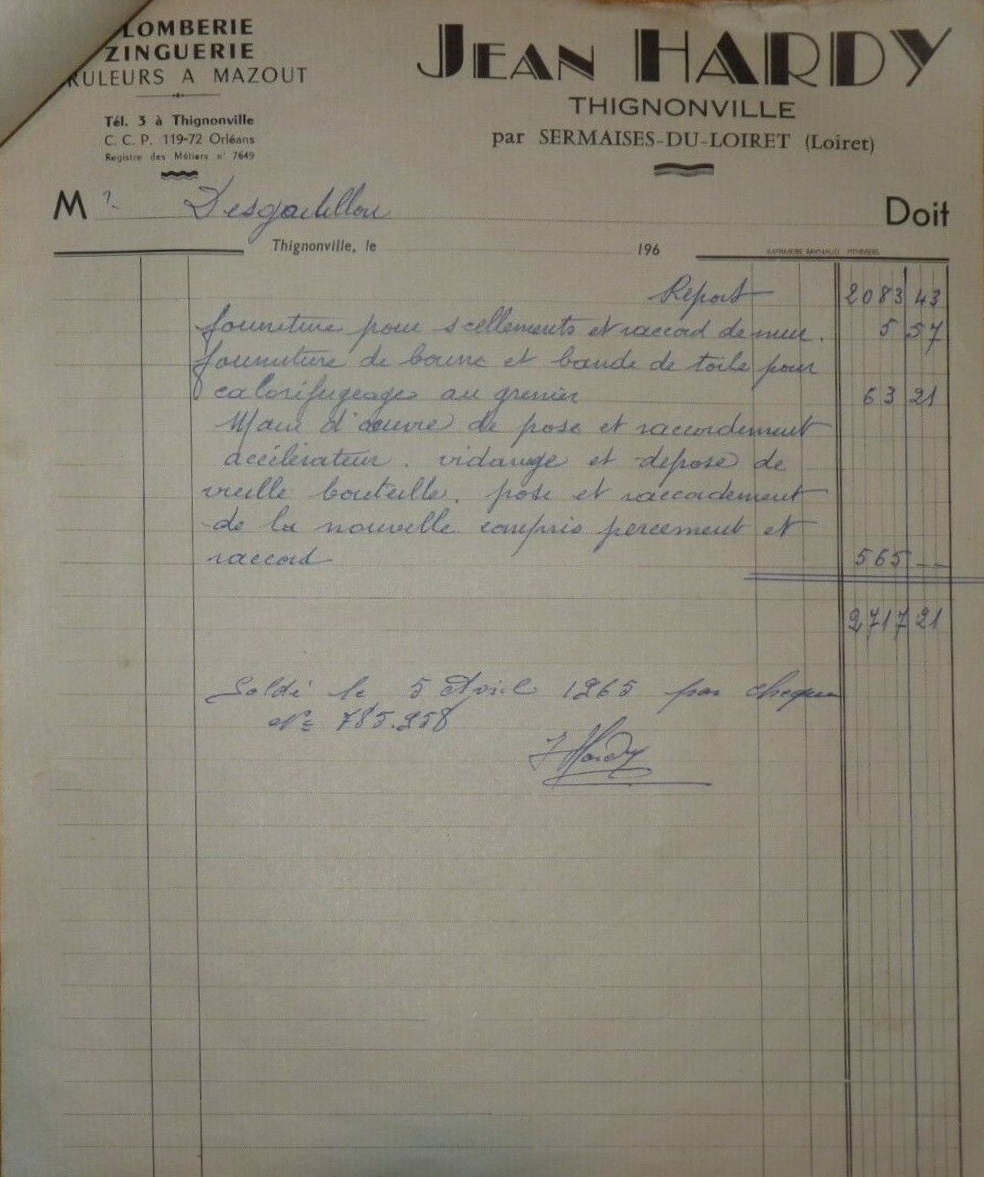 LOMBERIE
ZINGUERIE
RULEURS A MAZOUT
Tél. 3 à Thignonville
C. C. P. 119-72 Orléans
Registre des Métiers n° 7649
JEAN HARDY
THIGNONVILLE
par SERMAISES-DU-LOIRET (Loiret)
M r Doit
Thignonville, le 196
Report 2083 43
fourniture pour scellements et raccord de mur. 5 57
fourniture de bourre et bande de toile pour
calorifugeage au grenier 63 21
Main d'œuvre de pose et raccordement
accélérateur. vidange et depose de
vieille bouteille. pose et raccordement
de la nouvelle compris percement et
raccord 565 --
2717 21
Soldé le 5 Avril 1965 par cheque
N° 785.958
J Hardy